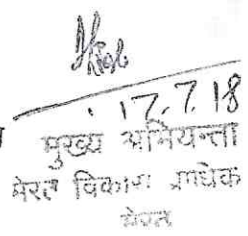 17.7.18
मुख्य अभियन्ता
मेरठ विकास प्राधिक
मेरठ